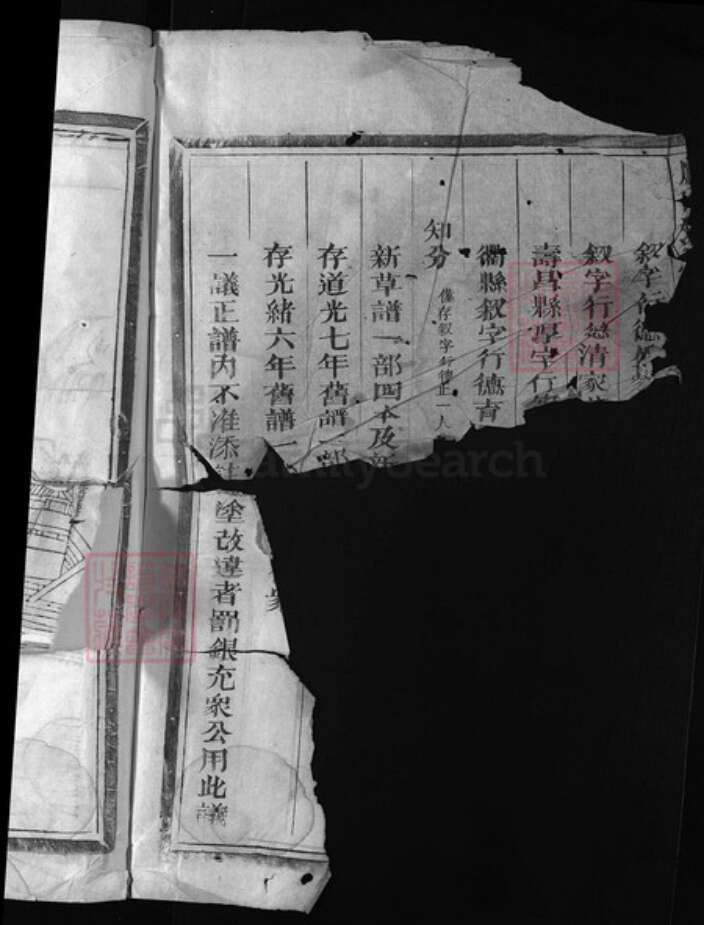 叙字行德
叙字行懋清家
壽昌縣厚字行
衢縣叙字行德青
知兮 僅存叙字行德正一人
新草譜一部四本及
存道光七年舊譜一部
存光緒六年舊譜一
衆
一議正譜內不准添 塗改違者罰銀充衆公用此議
FamilySearch